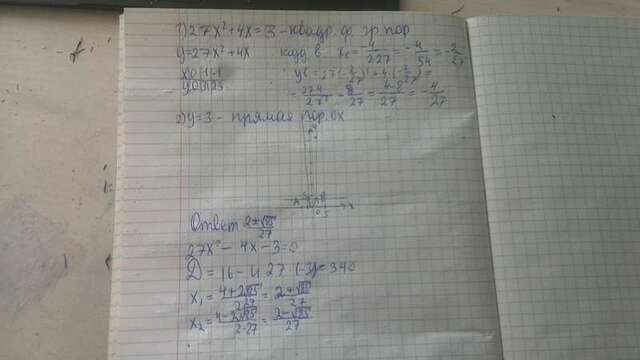 1) 27x² + 4x = 3 - квадр. ф. гр пар
y = 27x² + 4x коорд в x₀ = -4/2·27 = -4/54 = -2/27
x 0 1 -1
y 0 31 23
= 27·4/27² - 8/27 = 4-8/27 = -4/27
2) y = 3 - прямая пар. ox
Ответ 2±√85/27
27x² - 4x - 3 = 0
D = 16 - 4 27 (-3) = 340
x₁ = 4+2√85/2·27 = 2+√85/27
x₂ = 4-2√85/2·27 = 2-√85/27